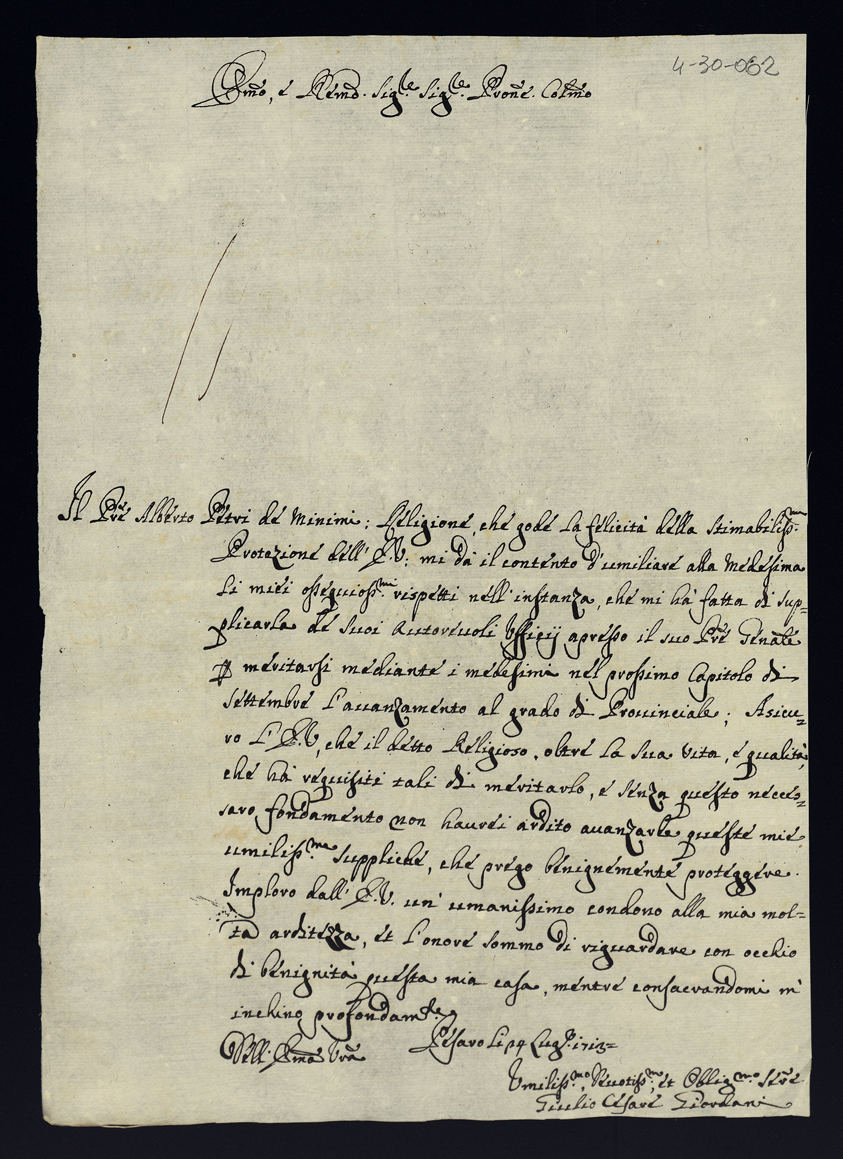 4-30-062
Emo, é Remo. Sig.re Sig.re Prone. Colmo
Il Prê Alberto Pétri dé Minimi; Réligioné, ché godé la félicità délla stimabiliss.ma
Protezioné déll' E.V. mi dà il conténto d'umiliaré alla médésima
li miéi osséquioss.mi rispétti néll'instanza, ché mi há fatta di sup=
plicarla dé suoi autoreuoli Ufficij aprésso il suo Prê Génâlé
p méritarsi médianté i médésimi nél prossimo Capitolo di
séttémbré l'auanzaménto al grado di Prouincialé; Asicu=
ro l'E.V, ché il détto Réligioso, oltré la sua vita, é qualità,
ché há réquisiti tali di méritarlo, é sénza quésto nécés=
saro fondaménto non hauréi ardito auanzarlé quésté mié
umiliss.me suppliché, ché prégo bénignéménté protéggéré.
Imploro dall' E.V. un' umanissimo condono alla mia mol=
ta arditézza, ét l'onoré sommo di riguardaré con occhio
di bénignità quésta mia casa, méntré consacrandomi m'
inchino profondam.te
Déll' Ema Vra Pésaro li 14 Lug.o 1713=
Umiliss.mo, Deuotiss.mo, ét Oblig.mo Sérê
Giulio Césaré Giordani